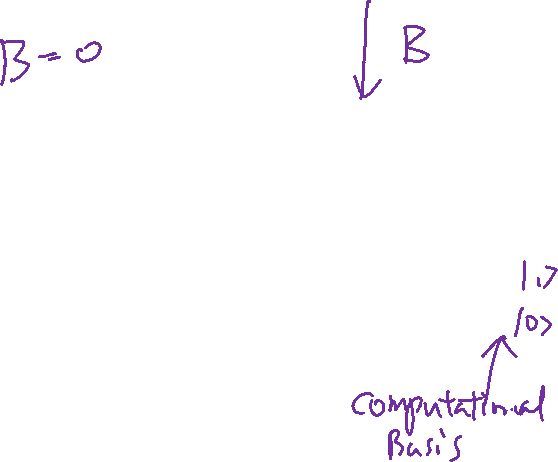 B = 0
B
|1>
|0>
Computational
Basis